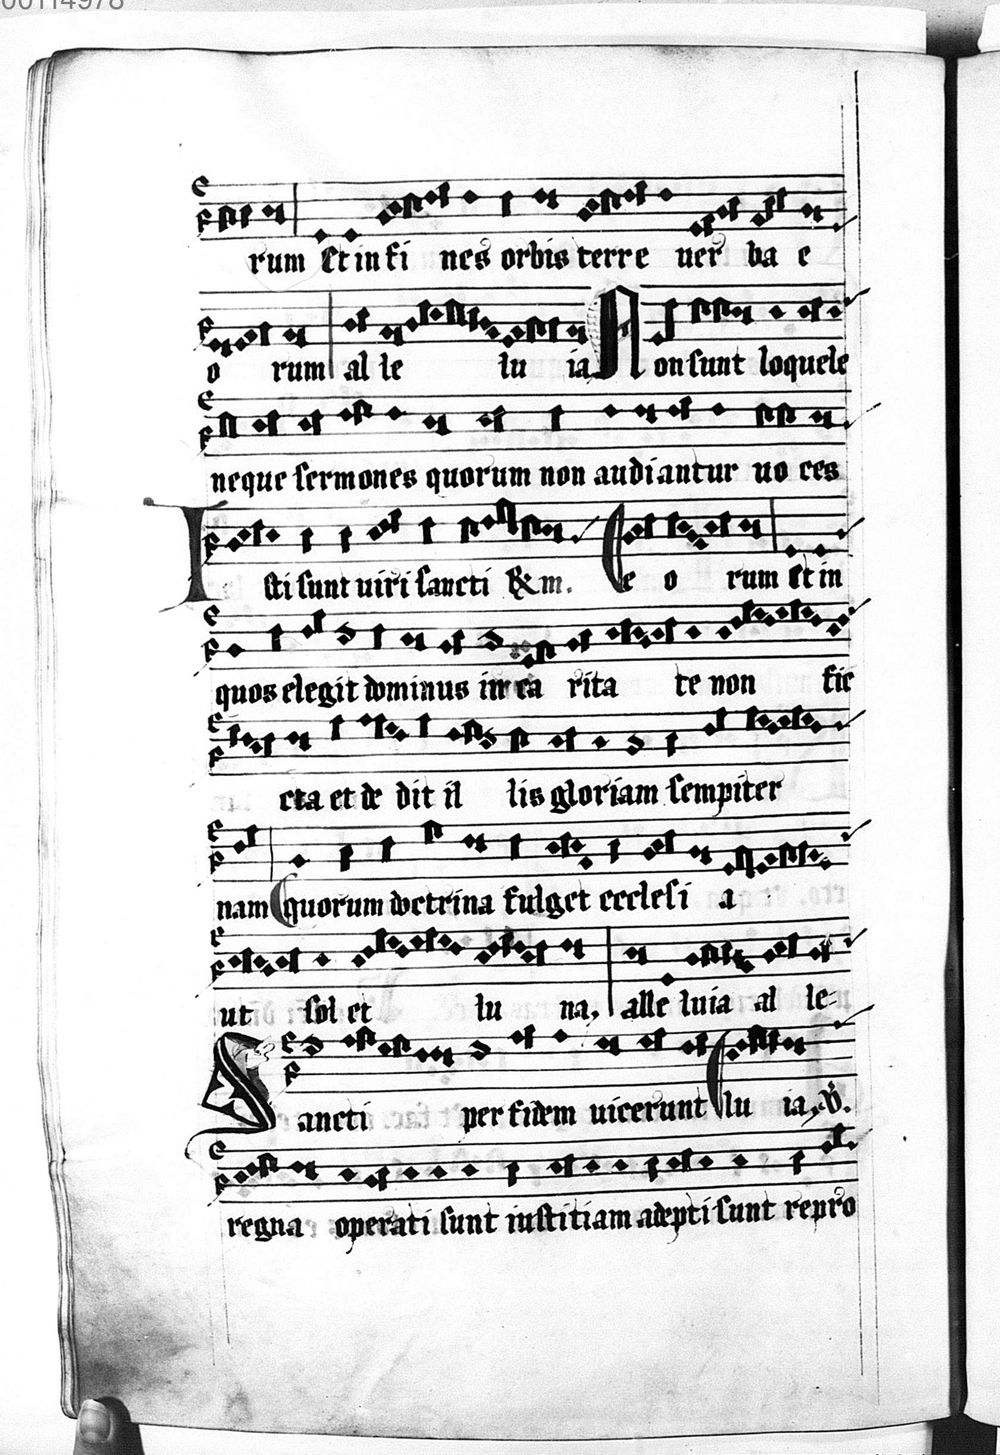 00114978
rum Et in fi nes orbis terre uer ba e
o rum al le lu ia Non sunt loquele
neque sermones quorum non audiantur uo ces
Isti sunt uiri sancti &m. e o rum Et in
quos elegit dominus in ca rita te non fic
cta et de dit il lis gloriam sempiter
nam quorum doctrina fulget ecclesi a
ut sol et lu na, alle luia al le
Sancti per fidem uicerunt lu ia, V.
regna operati sunt iustitiam adepti sunt repro